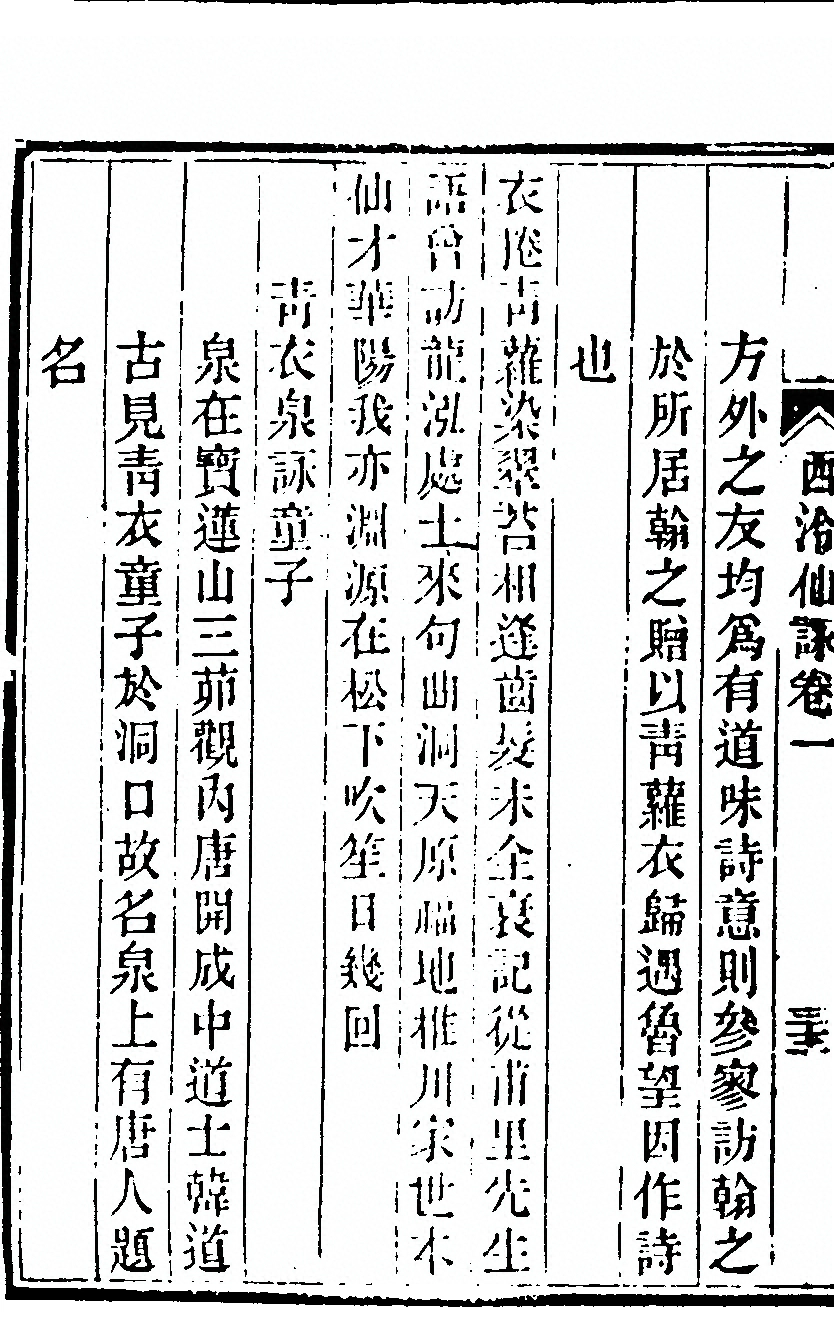 西泠仙詠卷一
三十六
方外之友均爲有道味詩意則參寥訪翰之
於所居翰之贈以靑蘿衣歸遇魯望因作詩
也
衣捲靑蘿染翠苔相逢齒髮未全衰記從甫里先生
語曾訪龍泓處士來句曲洞天原福地稚川家世本
仙才華陽我亦淵源在松下吹笙日幾回
靑衣泉詠童子
泉在寶蓮山三茆觀內唐開成中道士韓道
古見靑衣童子於洞口故名泉上有唐人題
名